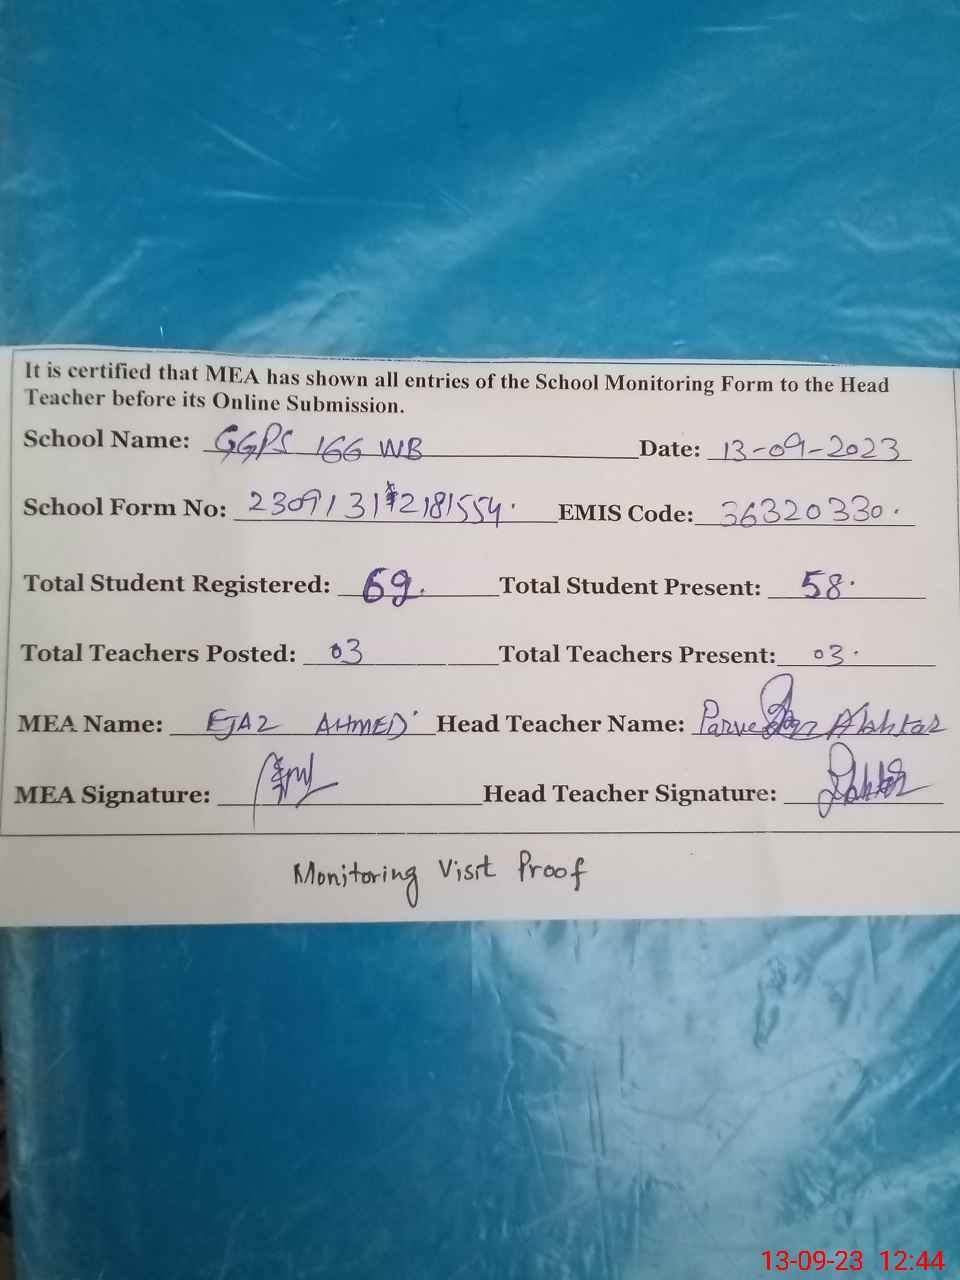 It is certified that MEA has shown all entries of the School Monitoring Form to the Head
Teacher before its Online Submission.
School Name: GGPS 166 WB Date: 13-09-2023
School Form No: EMIS Code: 36320330.
Total Student Registered: 69. Total Student Present: 58.
Total Teachers Posted: 03 Total Teachers Present: 03.
MEA Name: EJAZ AHMED Head Teacher Name: Akhtar
MEA Signature: Head Teacher Signature:
Monitoring Visit Proof
13-09-23 12:44